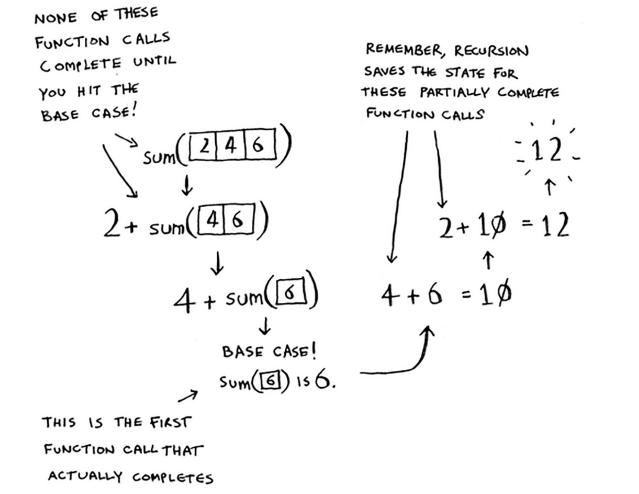 NONE OF THESE
FUNCTION CALLS
COMPLETE UNTIL
YOU HIT THE
BASE CASE!
sum([2 4 6])
2 + sum([4 6])
4 + sum([6])
BASE CASE!
sum([6]) IS 6.
THIS IS THE FIRST
FUNCTION CALL THAT
ACTUALLY COMPLETES
REMEMBER, RECURSION
SAVES THE STATE FOR
THESE PARTIALLY COMPLETE
FUNCTION CALLS
12
2 + 10 = 12
4 + 6 = 10